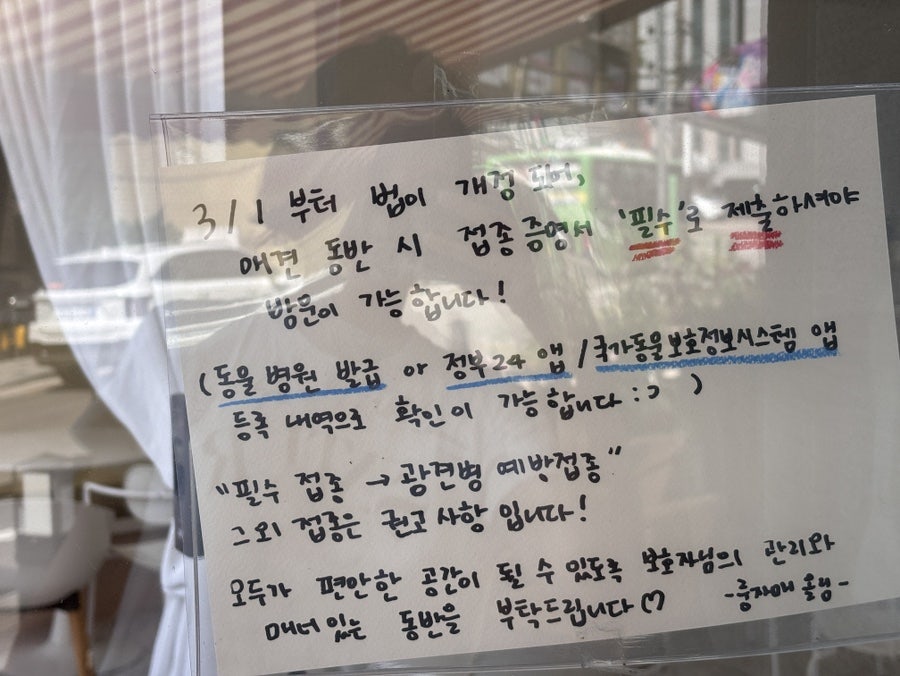 3/1 부터 법이 개정 되어,
애견 동반 시 접종증명서 '필수'로 제출하셔야
방문이 가능합니다!
(동물병원 발급 or 정부24 앱 / 국가동물보호정보시스템 앱
등록 내역으로 확인이 가능합니다 :) )
"필수 접종 → 광견병 예방접종"
그외 접종은 권고사항 입니다!
모두가 편안한 공간이 될 수 있도록 보호자님의 관리와
매너있는 동반을 부탁드립니다♡ -중자매 올림-